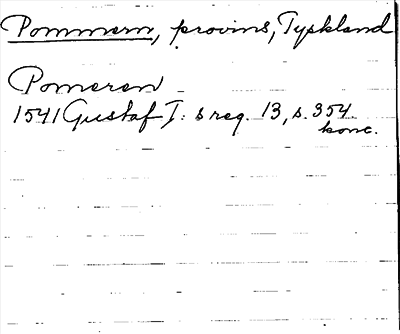 Pommern, provins, Tyskland
Pomeren
1541 Gustaf I: s reg. 13, s. 354.
konc.